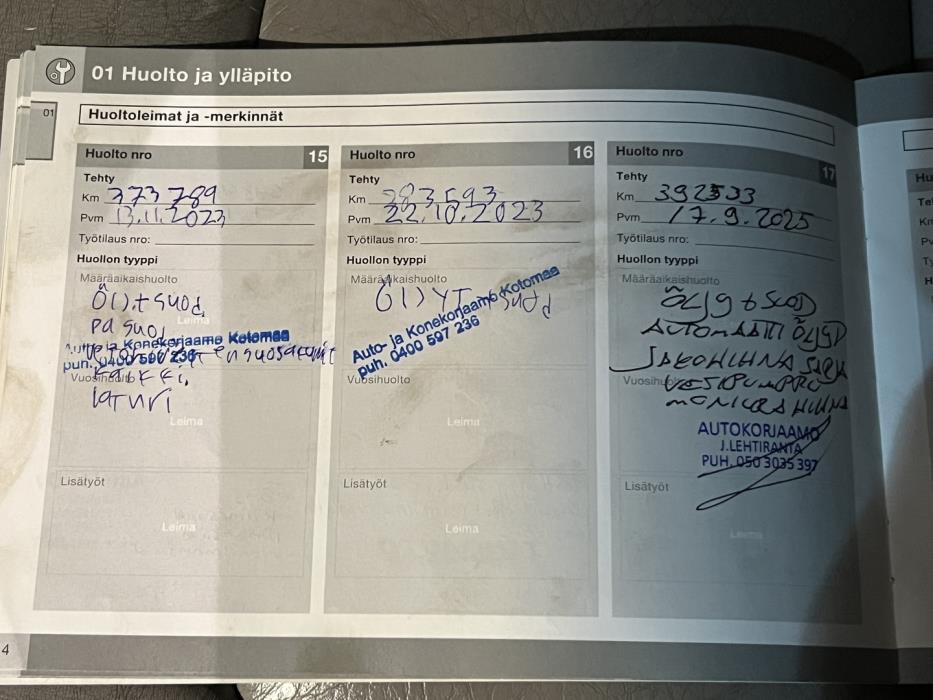 01 Huolto ja ylläpito
01
Huoltoleimat ja -merkinnät
Huolto nro 15
Tehty
Km 373 789
Pvm 13.11.2023
Työtilaus nro:
Huollon tyyppi
Määräaikaishuolto
Öljyt + suod.
pa suod
Leima
Auto- ja Konekorjaamo Kotomaa
puh. 0400 597 236
Vuosihuolto
Laturi
Leima
Lisätyöt
Leima
Huolto nro 16
Tehty
Km 383 593
Pvm 22.10.2023
Työtilaus nro:
Huollon tyyppi
Määräaikaishuolto
Öljyt suod
Auto- ja Konekorjaamo Kotomaa
puh. 0400 597 236
Vuosihuolto
Leima
Lisätyöt
Leima
Huolto nro 17
Tehty
Km 392533
Pvm 17.9.2025
Työtilaus nro:
Huollon tyyppi
Määräaikaishuolto
ÖLJY + SUOD
AUTOMAATTI ÖLJYT
JAKOHIHNA SARJA
Vuosihuolto
VESIPUMPPU
MONIURAHIHNA
AUTOKORJAAMO
J.LEHTIRANTA
PUH. 050 3035 397
Lisätyöt
Leima
4